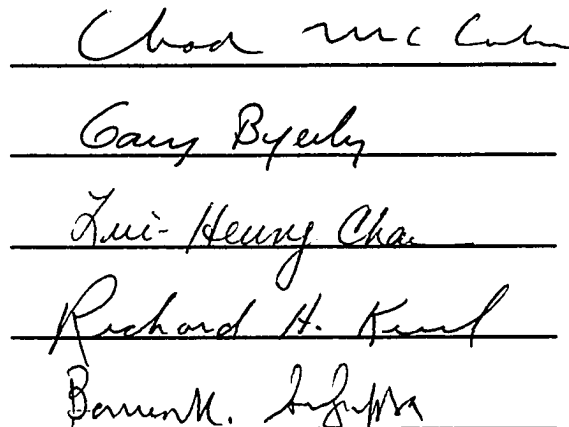 Chad Mc
Gary Byerly
Lui-Heung Cha
Richard H.
Barun K. SenGupta